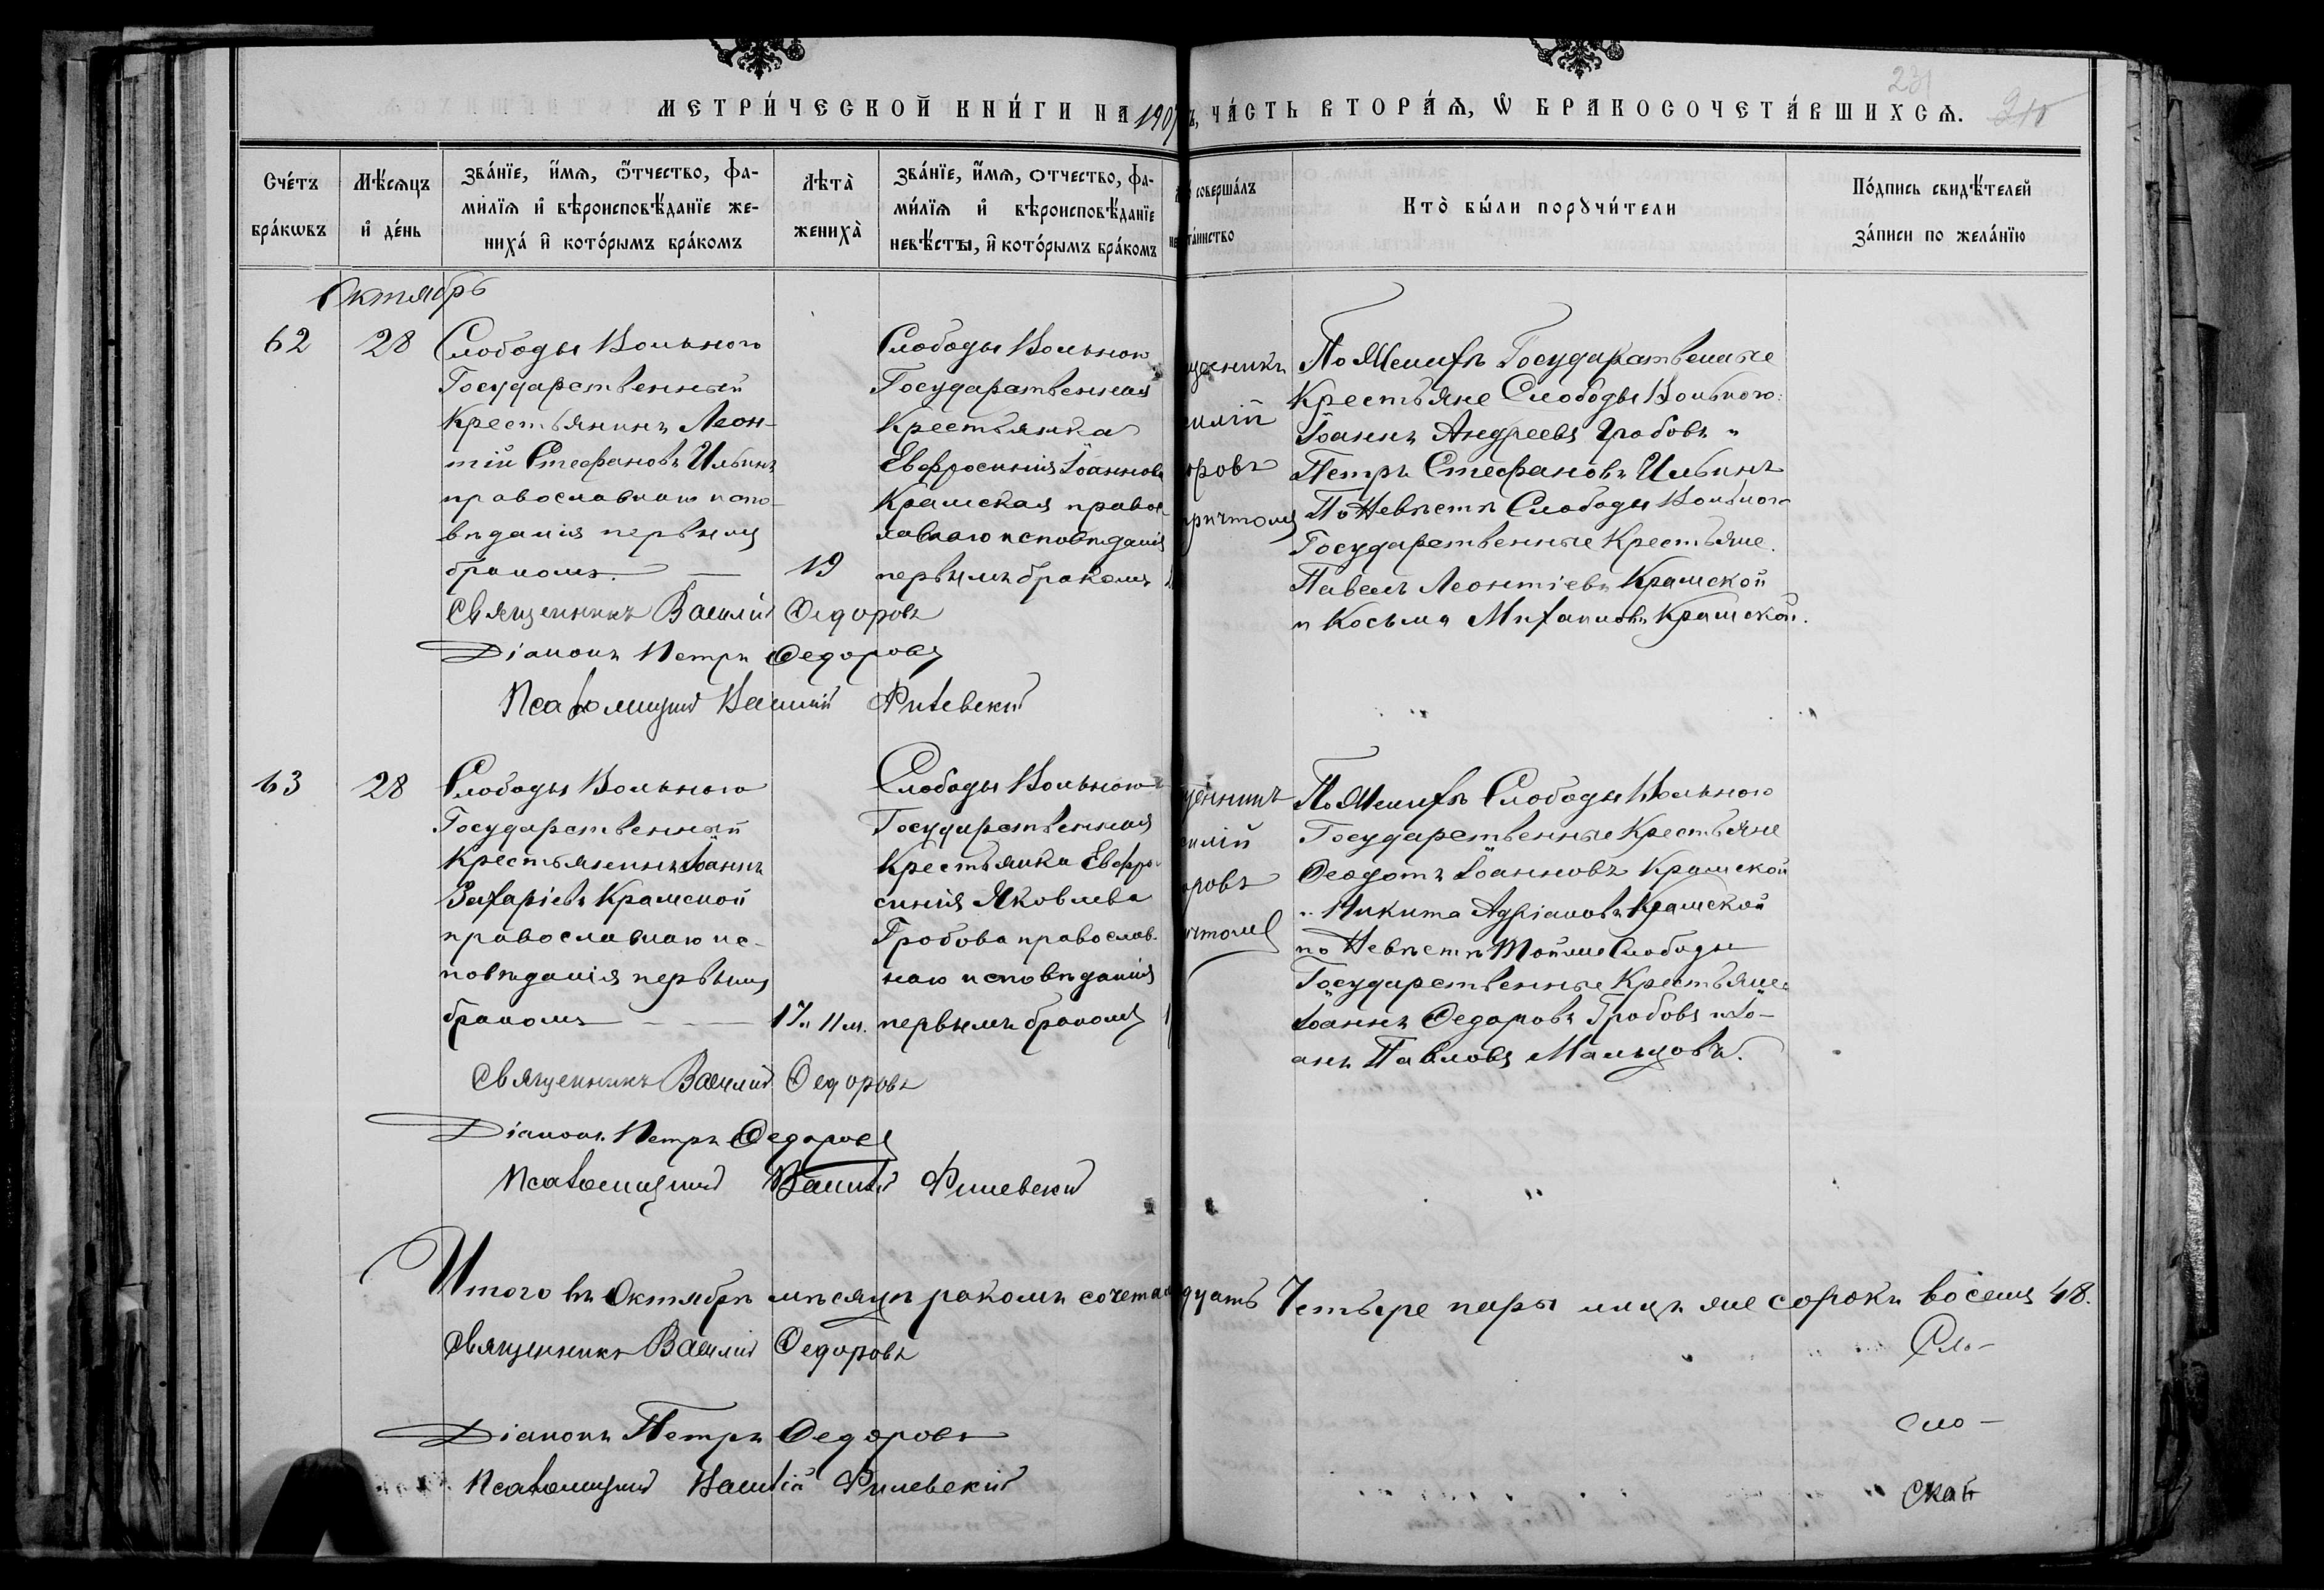 231
МЕТРИ́ЧЕСКОЙ КНИ́ГИ НА 190
Ъ, ЧА́СТЬ ВТОРА́Ѧ, Ѡ҆ БРАКОСОЧЕТА́ВШИХСѦ.
Сче́тъ
бра́кѡвъ
Мѣ́сѧцъ
и҆ де́нь
Зва́нїе, и҆́мѧ, ѻ҆́тчество, фа-
ми́лїѧ и҆ вѣроисповѣ́данїе же-
ниха́ и҆ кото́рымъ бра́комъ
Лѣта̀
жениха̀
Зва́нїе, и҆́мѧ, ѻ҆тчество, фа-
ми́лїѧ и҆ вѣроисповѣ́данїе
невѣ́сты, и҆ кото́рымъ бра́комъ
соверша́лъ
та́инство
Кто̀ бы́ли порꙋчи́тели
По́дпись свидѣ́телей
за́писи по жела́нїю
Октябрь
62
28
Слободы Вольного
Государственный
Крестьянинъ Леон-
тій Стефановъ Ильинъ
православнаго испо-
вѣданія первымъ
бракомъ.
19
Слободы Вольного
Государственная
Крестьянка
Евфросинія Іоаннова
Крамская правос-
лавнаго исповѣданія
первымъ бракомъ
щенникъ
силій
оровъ
причтомъ
По Женихѣ Государственные
Крестьяне Слободы Вольного:
Іоаннъ Андреевъ Гробовъ и
Петръ Стефановъ Ильинъ
По Невѣстѣ Слободы Вольного
Государственные Крестьяне.
Павелъ Леонтіевъ Крамской
и Косьма Михаиловъ Крамской.
Священникъ Василій Ѳедоровъ
Діаконъ Петръ Ѳедоровъ
Псаломщикъ Василій Филевскій
63
28
Слободы Вольного
Государственный
Крестьянинъ Іоаннъ
Захаріевъ Крамской
православнаго ис-
повѣданія первымъ
бракомъ
17 л. 11 м.
Слободы Вольного
Государственная
Крестьянка Евфро-
синія Яковлева
Гробова православ-
наго исповѣданія
первымъ бракомъ
щенникъ
силій
оровъ
ичтомъ
По Женихѣ Слободы Вольного
Государственные Крестьяне
Ѳеодотъ Іоанновъ Крамской
и Никита Адріановъ Крамской
по Невѣстѣ Той же Слободы
Государственные Крестьяне:
Іоаннъ Ѳедоровъ Гробовъ и Іо-
анъ Павловъ Мальцовъ.
Священникъ Василій Ѳедоровъ
Діаконъ Петръ Ѳедоровъ
Псаломщикъ Василій Филевскій
Итого въ Октябрѣ мѣсяцѣ ракомъ сочета
дцать Четыре пары лицъ же сорокъ восемь 48.
Священникъ Василій Ѳедоровъ
Сло-
Діаконъ Петръ Ѳедоровъ
сло-
Псаломщикъ Василій Филевскій